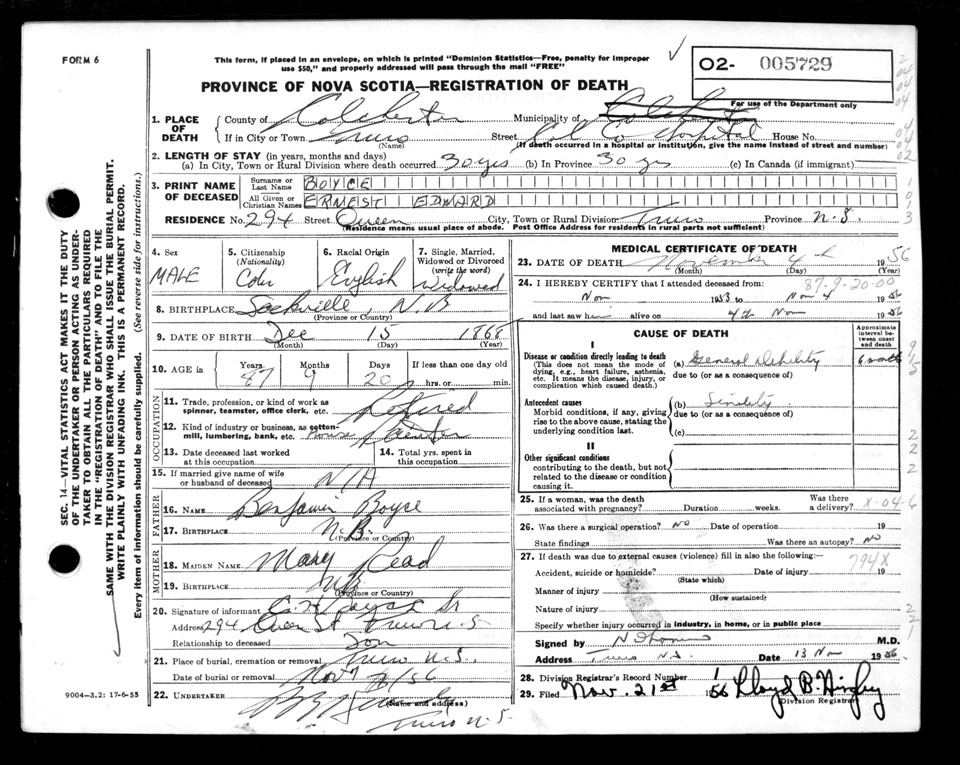 FORM 6
This form, if placed in an envelope, on which is printed "Dominion Statistics—Free, penalty for improper
use $50," and properly addressed will pass through the mail "FREE"
PROVINCE OF NOVA SCOTIA—REGISTRATION OF DEATH
02- 005729
For use of the Department only
1. PLACE OF DEATH
County of Colchester Municipality of Colchester
If in City or Town Truro (Name) Street Col Co Hospital House No.
(If death occurred in a hospital or institution, give the name instead of street and number)
2. LENGTH OF STAY (in years, months and days)
(a) In City, Town or Rural Division where death occurred 30 yrs (b) In Province 30 yrs (c) In Canada (if immigrant)
3. PRINT NAME OF DECEASED
Surname or Last Name BOYCE
All Given or Christian Names ERNEST EDWARD
RESIDENCE No. 294 Street Queen City, Town or Rural Division Truro Province N.S.
(Residence means usual place of abode. Post Office Address for residents in rural parts not sufficient)
4. Sex MALE
5. Citizenship (Nationality) Can
6. Racial Origin English
7. Single, Married, Widowed or Divorced (write the word) Widowed
8. BIRTHPLACE Sackville, N.B
(Province or Country)
9. DATE OF BIRTH Dec 15 1868
(Month) (Day) (Year)
10. AGE in Years 87 Months 9 Days 20 If less than one day old hrs. or min.
OCCUPATION
11. Trade, profession, or kind of work as spinner, teamster, office clerk, etc. Retired
12. Kind of industry or business, as cotton-mill, lumbering, bank, etc. House Painter
13. Date deceased last worked at this occupation
14. Total yrs. spent in this occupation
15. If married give name of wife or husband of deceased N/A
FATHER
16. NAME Benjamin Boyce
17. BIRTHPLACE N.B.
(Province or Country)
MOTHER
18. MAIDEN NAME Mary Read
19. BIRTHPLACE NB
(Province or Country)
20. Signature of informant Sr
Address 294 Queen St Truro N.S
Relationship to deceased Son
21. Place of burial, cremation or removal Truro N.S.
Date of burial or removal Nov /56
22. UNDERTAKER
(Name and address)
Truro N.S
MEDICAL CERTIFICATE OF DEATH
23. DATE OF DEATH November 4th 1956
(Month) (Day)
24. I HEREBY CERTIFY that I attended deceased from: 87-9-20-00
Nov 1953 to Nov 4 1956
and last saw him alive on 4th Nov 1956
CAUSE OF DEATH
Approximate interval between onset and death
I
Disease or condition directly leading to death
(This does not mean the mode of dying, e.g., heart failure, asthenia, etc. It means the disease, injury, or complication which caused death.)
(a) General Debility 6 months
due to (or as a consequence of)
Antecedent causes
Morbid conditions, if any, giving rise to the above cause, stating the underlying condition last.
(b) Sinility
due to (or as a consequence of)
(c)
II
Other significant conditions
contributing to the death, but not related to the disease or condition causing it.
25. If a woman, was the death associated with pregnancy? Duration weeks. Was there a delivery? X-04-6
26. Was there a surgical operation? NO Date of operation 19
State findings Was there an autopsy? NO
27. If death was due to external causes (violence) fill in also the following:—
794X
Accident, suicide or homicide? Date of injury 19
(State which)
Manner of injury
(How sustained)
Nature of injury
Specify whether injury occurred in industry, in home, or in public place
Signed by M.D.
Address Truro N.S. Date 13 Nov 1956
28. Division Registrar's Record Number
29. Filed Nov. 21st '56 Lloyd B.
Division Registrar
SEC. 14—VITAL STATISTICS ACT MAKES IT THE DUTY
OF THE UNDERTAKER OR PERSON ACTING AS UNDER-
TAKER TO OBTAIN ALL THE PARTICULARS REQUIRED
IN THE "REGISTRATION OF DEATH" AND TO FILE THE
SAME WITH THE DIVISION REGISTRAR WHO SHALL ISSUE THE BURIAL PERMIT.
WRITE PLAINLY WITH UNFADING INK. THIS IS A PERMANENT RECORD.
Every item of information should be carefully supplied. (See reverse side for instructions.)
9004—3.2: 17-6-55